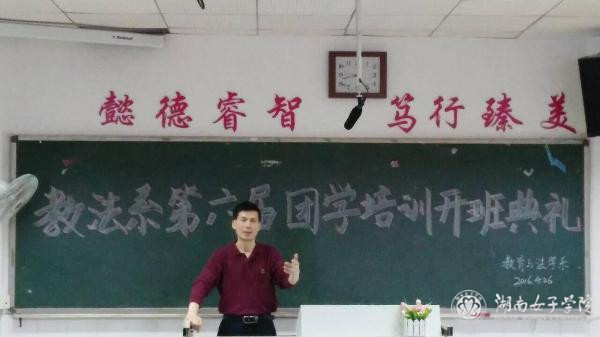 懿德睿智 笃行臻美
教法系第六届团学培训开班典礼
教育与法学系
2016.4.26
湖南女子学院